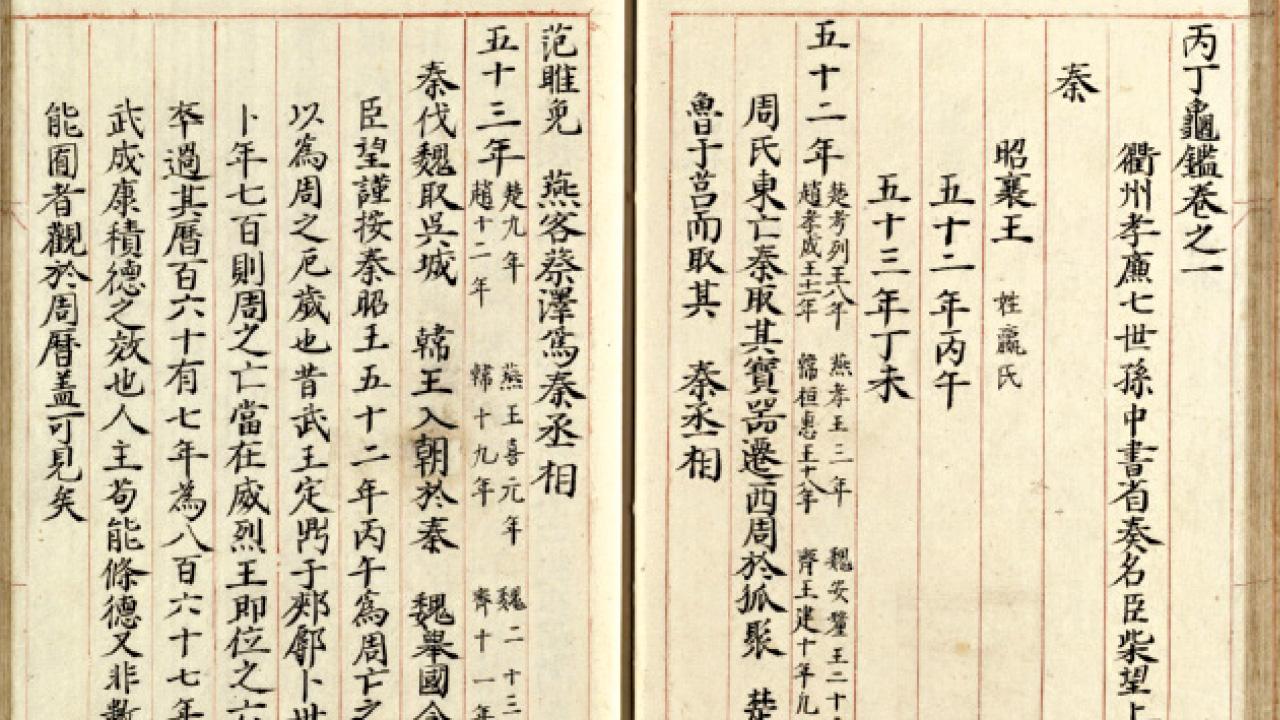 丙丁龜鑑卷之一
衢州孝廉七世孫中書省奏名臣柴望上
秦
昭襄王 姓嬴氏
五十二年丙午
五十三年丁未
五十二年 楚考列王八年 燕孝王三年 魏安釐王二十
趙孝成王十一年 韓桓惠王十八年 齊王建十年九
周氏東亡秦取其寶器遷西周於狐聚 楚
魯于莒而取其 秦丞相
范睢免 燕客蔡澤爲秦丞相
五十三年 楚九年 燕王喜元年 魏二十三
趙十二年 韓十九年 齊十一年
秦伐魏取吳城 韓王入朝於秦 魏舉國
臣望謹按秦昭王五十二年丙午爲周亡之
以爲周之厄歲也昔武王定鼎于郟鄏卜世
卜年七百則周之亡當在威烈王即位之六
夲過其曆百六十有七年為八百六十七年
武成康積德之效也人主苟能條德又非數
能囿者觀於周曆盖可見矣